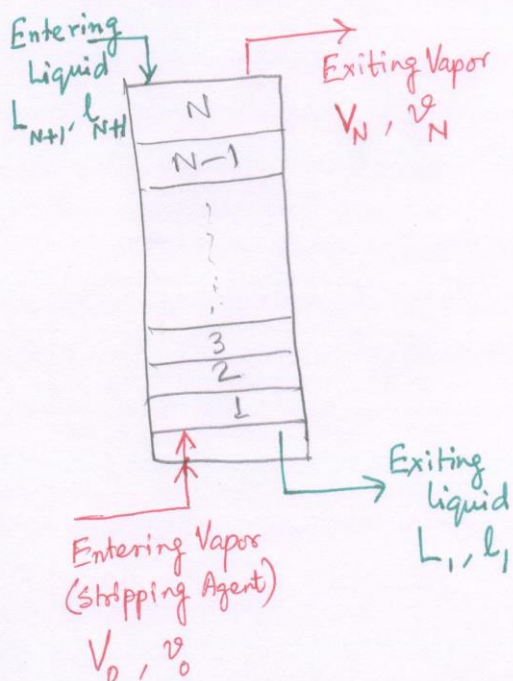 Entering
Liquid
L_{N+1}, l_{N+1}
Exiting Vapor
V_N, v_N
N
N-1
3
2
1
Exiting
liquid
L_1, l_1
Entering Vapor
(Stripping Agent)
V_0, v_0